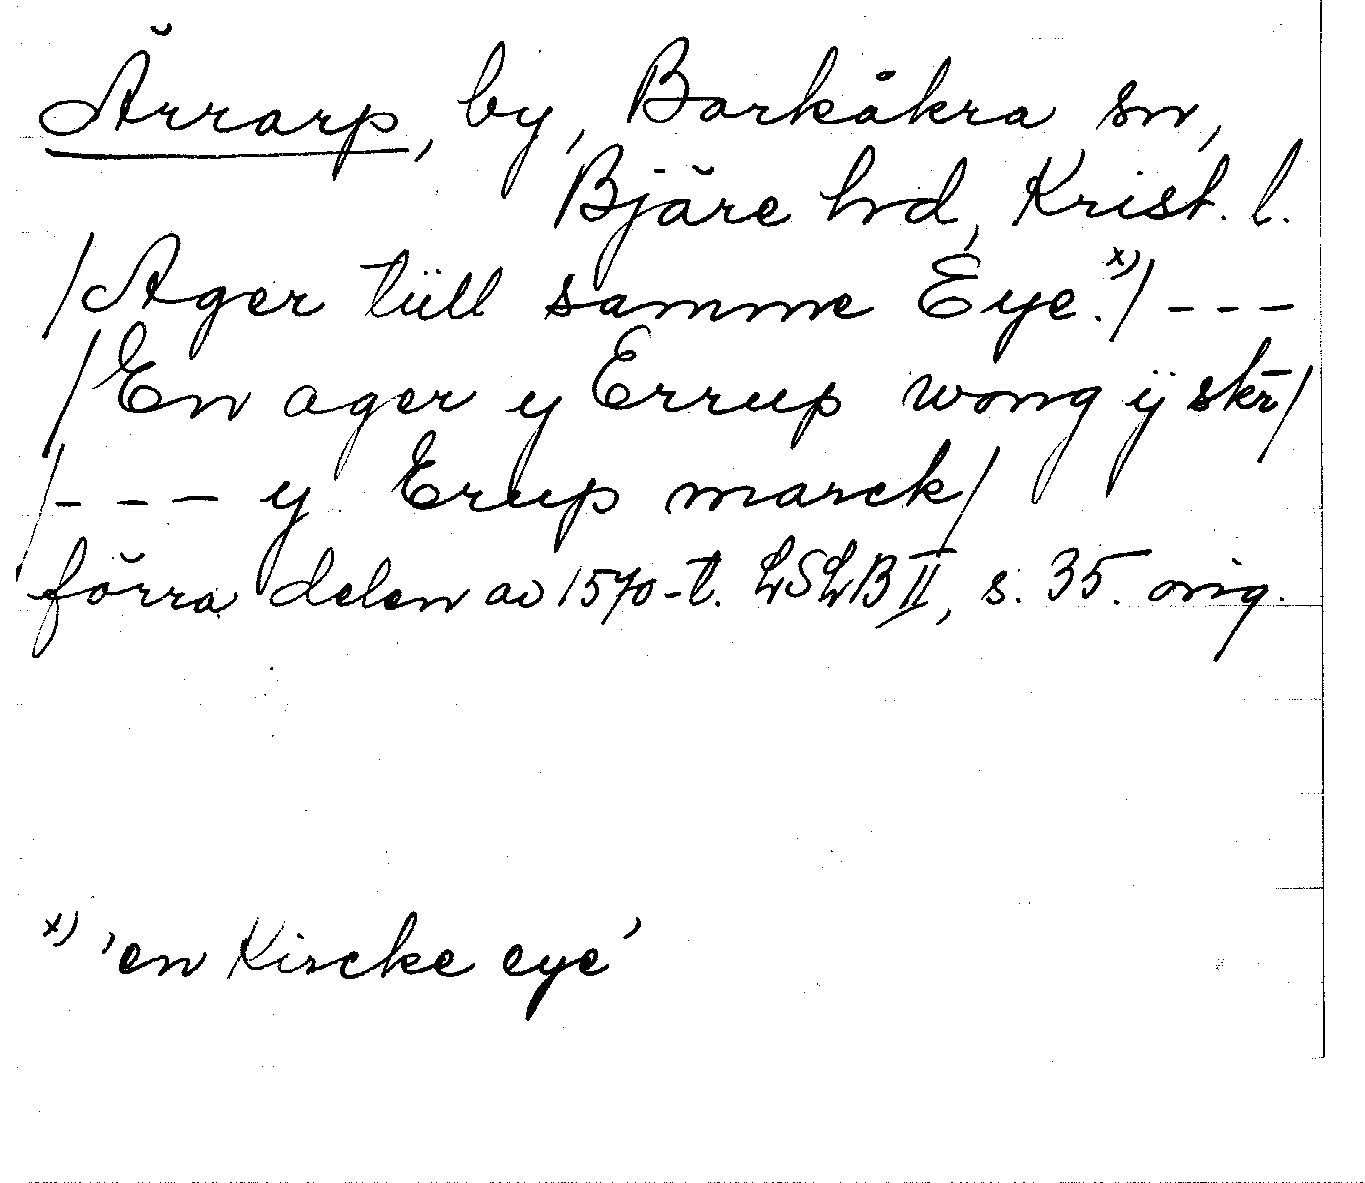 Ärrarp, by, Barkåkra sn,
Bjäre hd, Krist. l.
/Ager tüll samme Eye.x)/ - - -
/En ager y Errup wong ÿ skr̄/
/- - - y Erup marck/
förra delen av 1570-t. LSLB II, s. 35. orig.
x) 'en Kircke eye'